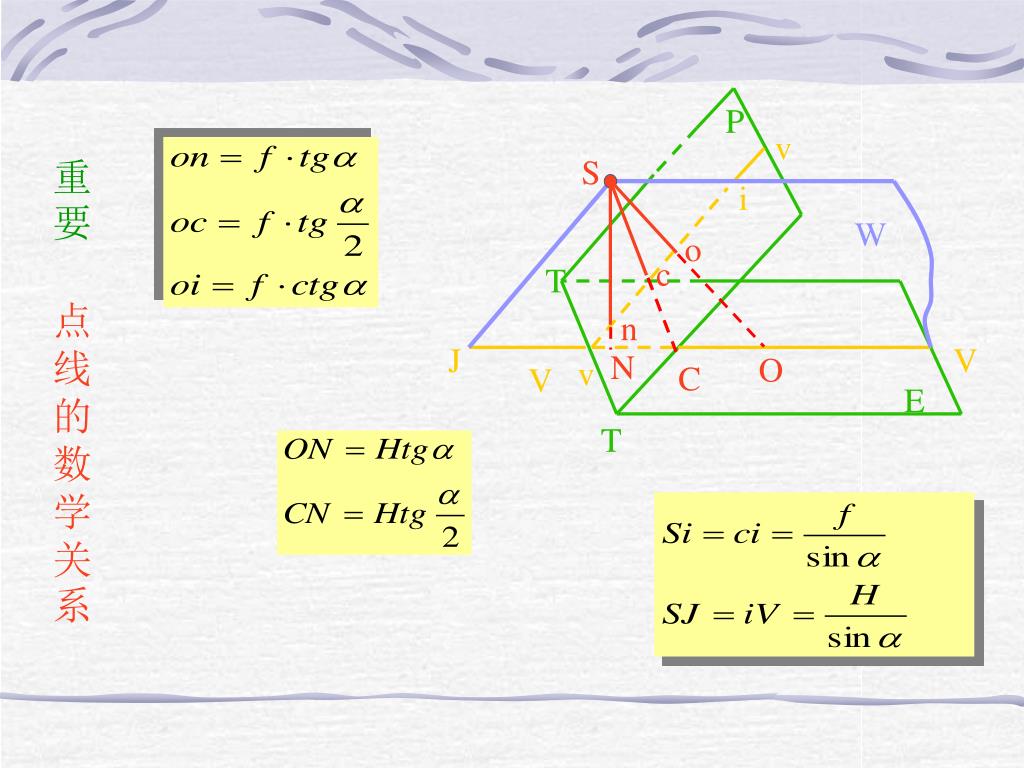 重要 点线的数学关系
on = f · tgα
oc = f · tg α/2
oi = f · ctgα
P
v
S
i
W
o
T
c
n
J
V
v
N
C
O
V
E
T
ON = Htgα
CN = Htg α/2
Si = ci = f/sin α
SJ = iV = H/sin α